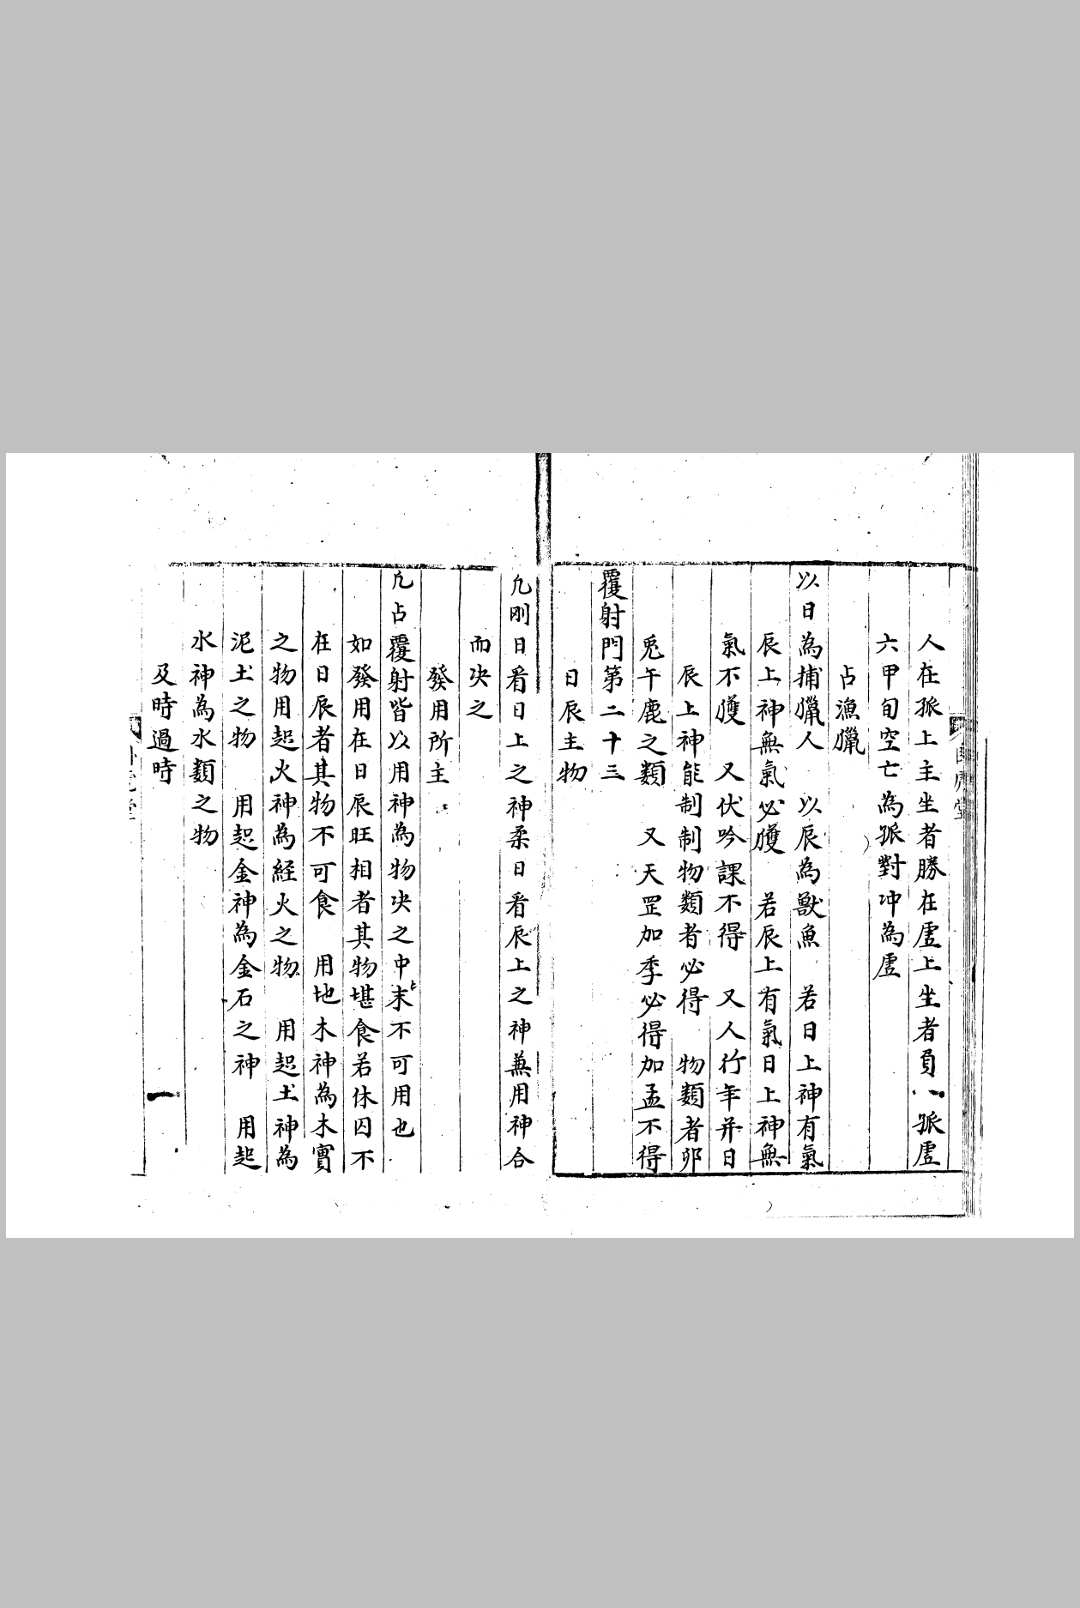 人在孤上主坐者勝在虛上坐者員八孤虛
六甲旬空亡為孤對冲為虛
占漁獵
以日為捕獵人 以辰為獸魚 若日上神有氣
辰上神無氣必獲 若辰上有氣日上神無
氣不獲 又伏吟課不得 又人行年并日
辰上神能制制物類者必得 物類者卯
兎午鹿之類 又天罡加季必得加孟不得
覆射門第二十三
日辰主物
凢剛日看日上之神柔日看辰上之神兼用神合
而决之
發用所主
凢占覆射皆以用神為物决之中末不可用也
如發用在日辰旺相者其物堪食若休囚不
在日辰者其物不可食 用地木神為木實
之物用起火神為経火之物 用起土神為
泥土之物 用起金神為金石之神 用起
水神為水類之物
及時過時